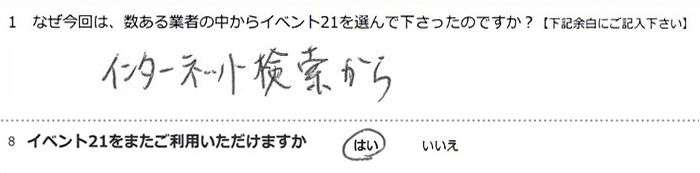 1 なぜ今回は、数ある業者の中からイベント21を選んで下さったのですか？【下記余白にご記入下さい】
インターネット検索から
8 イベント21をまたご利用いただけますか はい いいえ